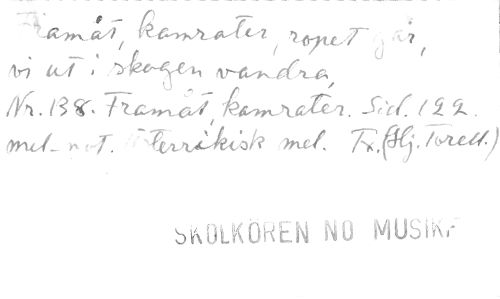 Framåt, kamrater, ropet går,
vi ut i skogen vandra,
Nr. 138. Framåt, kamrater. Sid. 122.
mel-not. Österrikisk mel. Tx. (Hj. Torell.)
SKOLKÖREN NO MUSIK